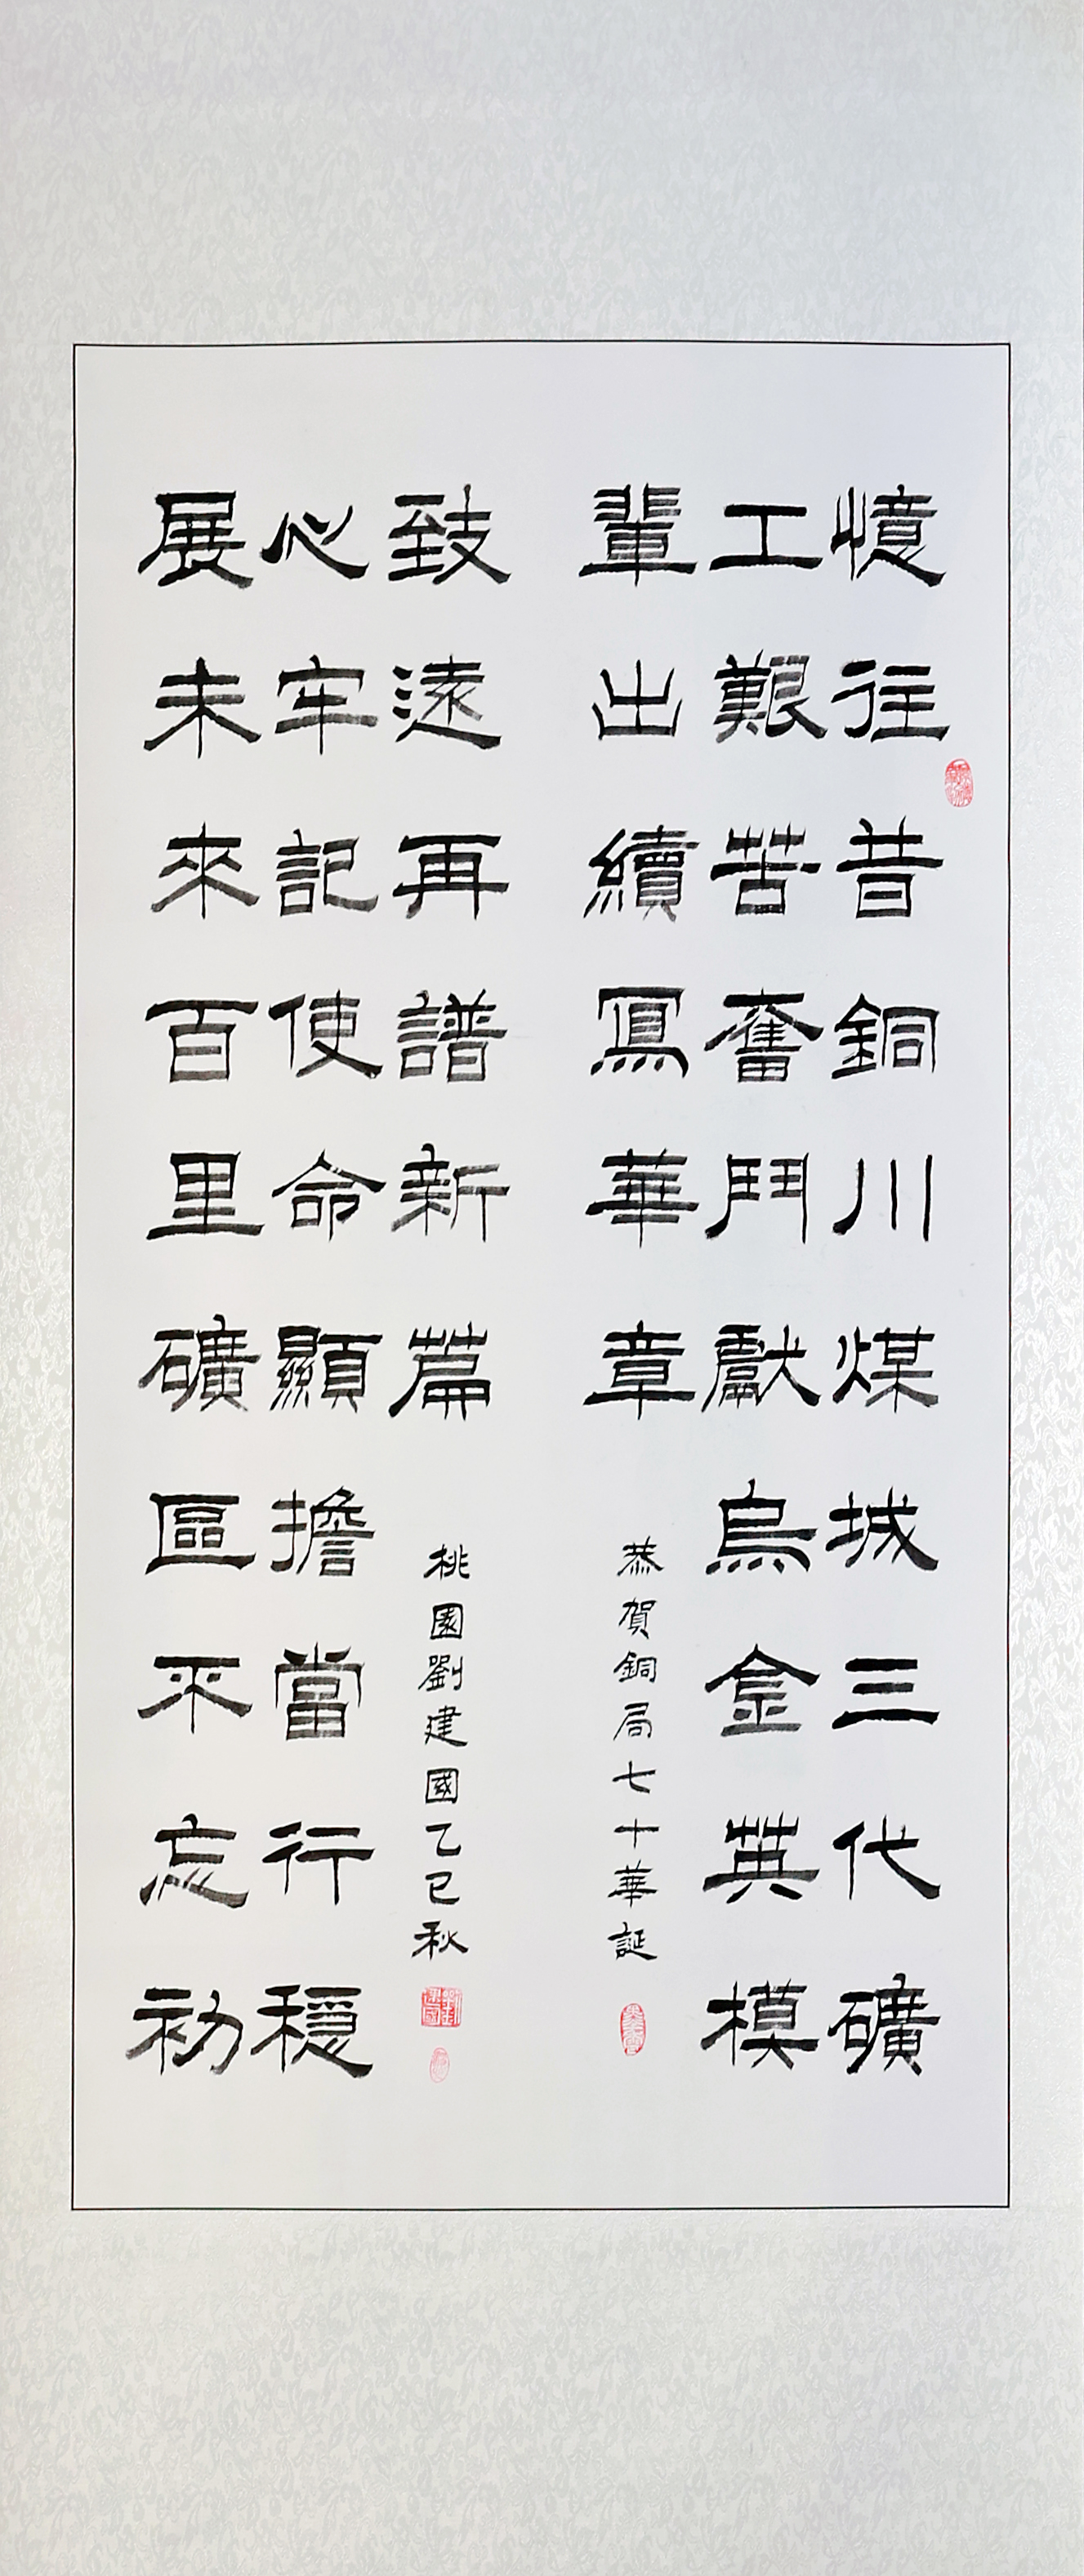 憶往昔銅川煤城三代礦
工艱苦奮鬥獻烏金英模
輩出續寫華章
恭賀銅局七十華誕
展未來百里礦區不忘初
心牢記使命顯擔當行穩
致遠再譜新篇
桃園劉建國乙巳秋